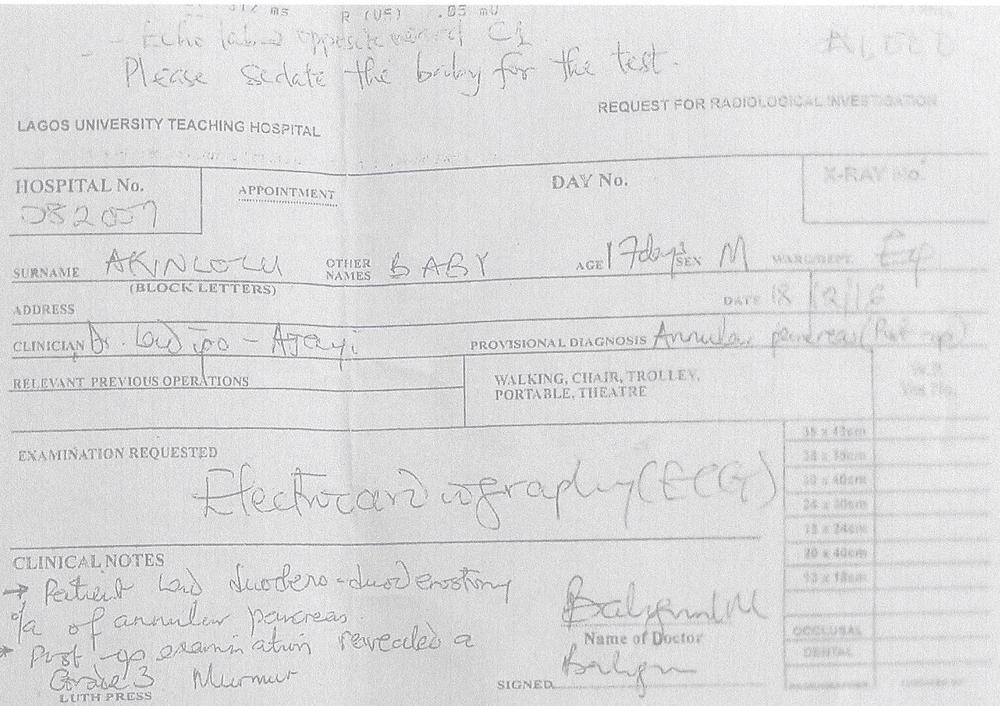 ms R (V5) .85 mV
- Echo lab opposite ward C1
Please sedate the baby for the test.
REQUEST FOR RADIOLOGICAL INVESTIGATION
LAGOS UNIVERSITY TEACHING HOSPITAL
HOSPITAL No. APPOINTMENT DAY No. X-RAY No.
SURNAME AKINLOLU OTHER NAMES BABY AGE 17days SEX M WARD/DEPT.
(BLOCK LETTERS)
ADDRESS DATE 18
CLINICIAN Dr. Ladipo - Ajayi PROVISIONAL DIAGNOSIS Annular pancreas (Post op)
RELEVANT PREVIOUS OPERATIONS
WALKING, CHAIR, TROLLEY,
PORTABLE, THEATRE
35 x 43cm
EXAMINATION REQUESTED
30 x 40cm
Electrocardiography (ECG)
24 x 30cm
18 x 24cm
20 x 40cm
13 x 18cm
CLINICAL NOTES
→ Patient had duodeno-duodenostomy
of annular pancreas.
Name of Doctor
OCCLUSAL
→ Post-op examination revealed a
DENTAL
Grade 3 Murmur
SIGNED
LUTH PRESS